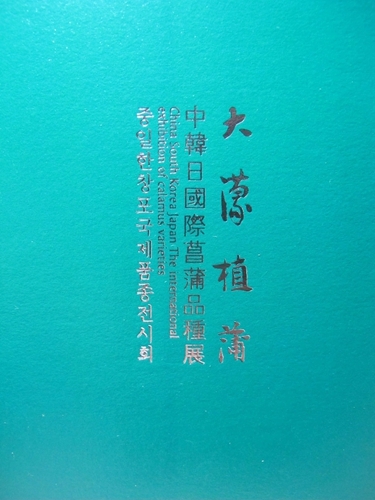 大濛植蒲
中韓日國際菖蒲品種展
China South Korea Japan The international
exhibition of calamus varieties
중일한창포국제품종전시회